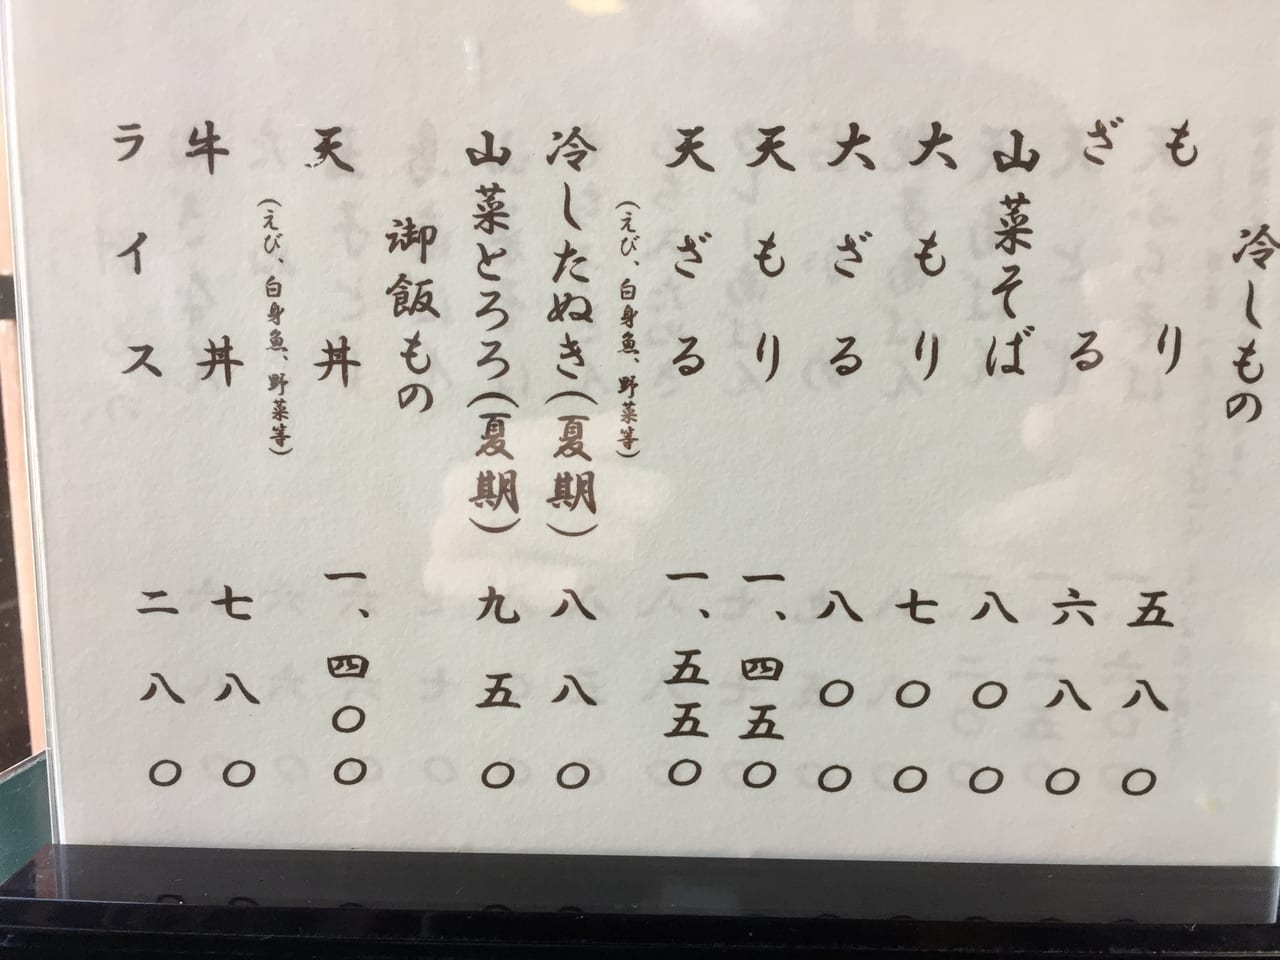 冷しもの
もり 五八〇
ざる 六八〇
山菜そば 八〇〇
大もり 七〇〇
大ざる 八〇〇
天もり 一、四五〇
天ざる 一、五五〇
(えび、白身魚、野菜等)
冷したぬき(夏期) 八八〇
山菜とろろ(夏期) 九五〇
御飯もの
天丼 一、四〇〇
(えび、白身魚、野菜等)
牛丼 七八〇
ライス 二八〇